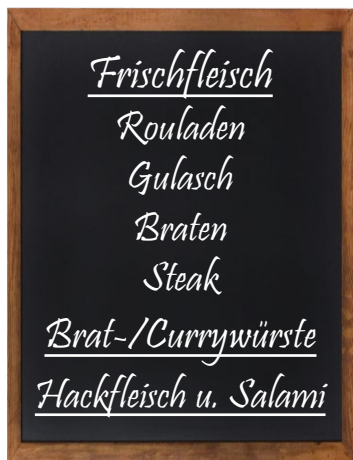 Frischfleisch
Rouladen
Gulasch
Braten
Steak
Brat-/Currywürste
Hackfleisch u. Salami